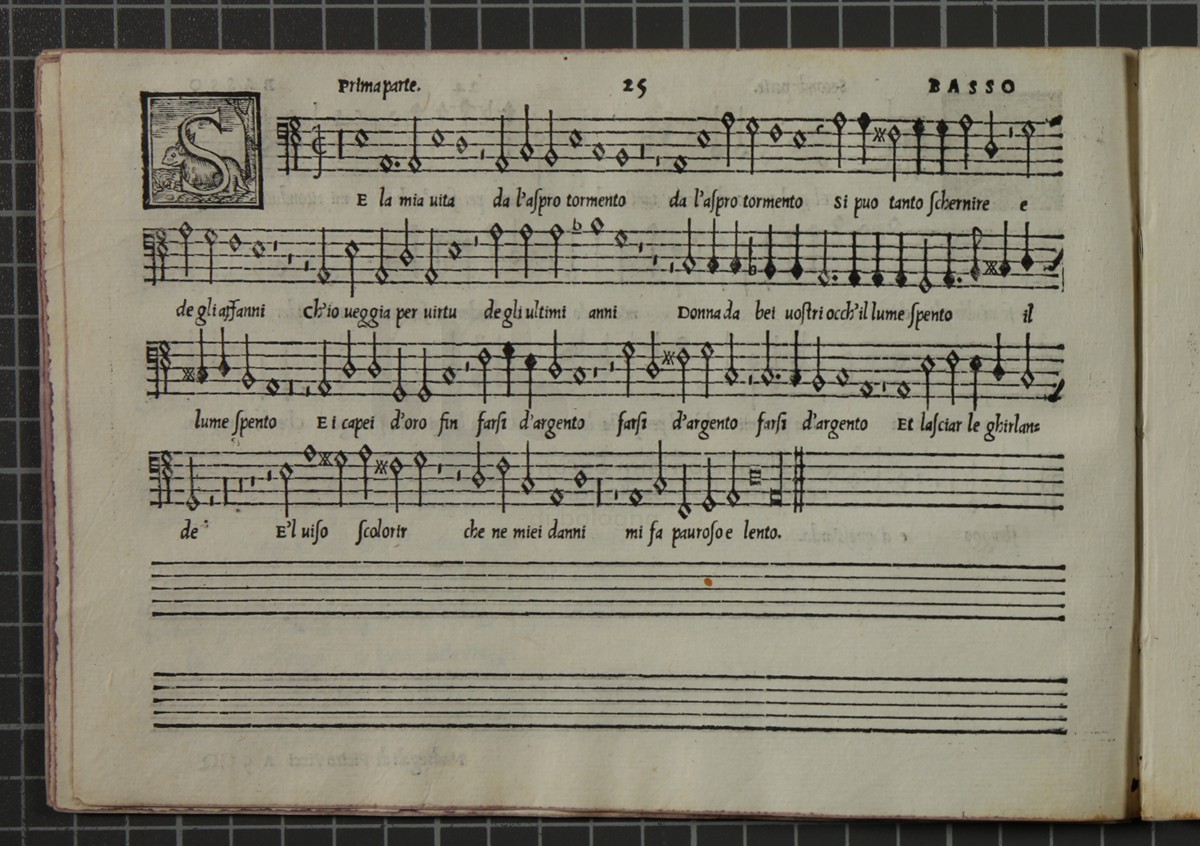 Prima parte. 25 BASSO
SE la mia uita da l'aſpro tormento da l'aſpro tormento Si puo tanto ſchernire e
de gli affanni Ch'io ueggia per uirtu de gli ultimi anni Donna da bei uoſtri occh'il lume ſpento il
lume ſpento E i capei d'oro fin farſi d'argento farſi d'argento farſi d'argento Et laſciar le ghirlan=
de E'l uiſo ſcolorir che ne miei danni mi fa pauroſo e lento.